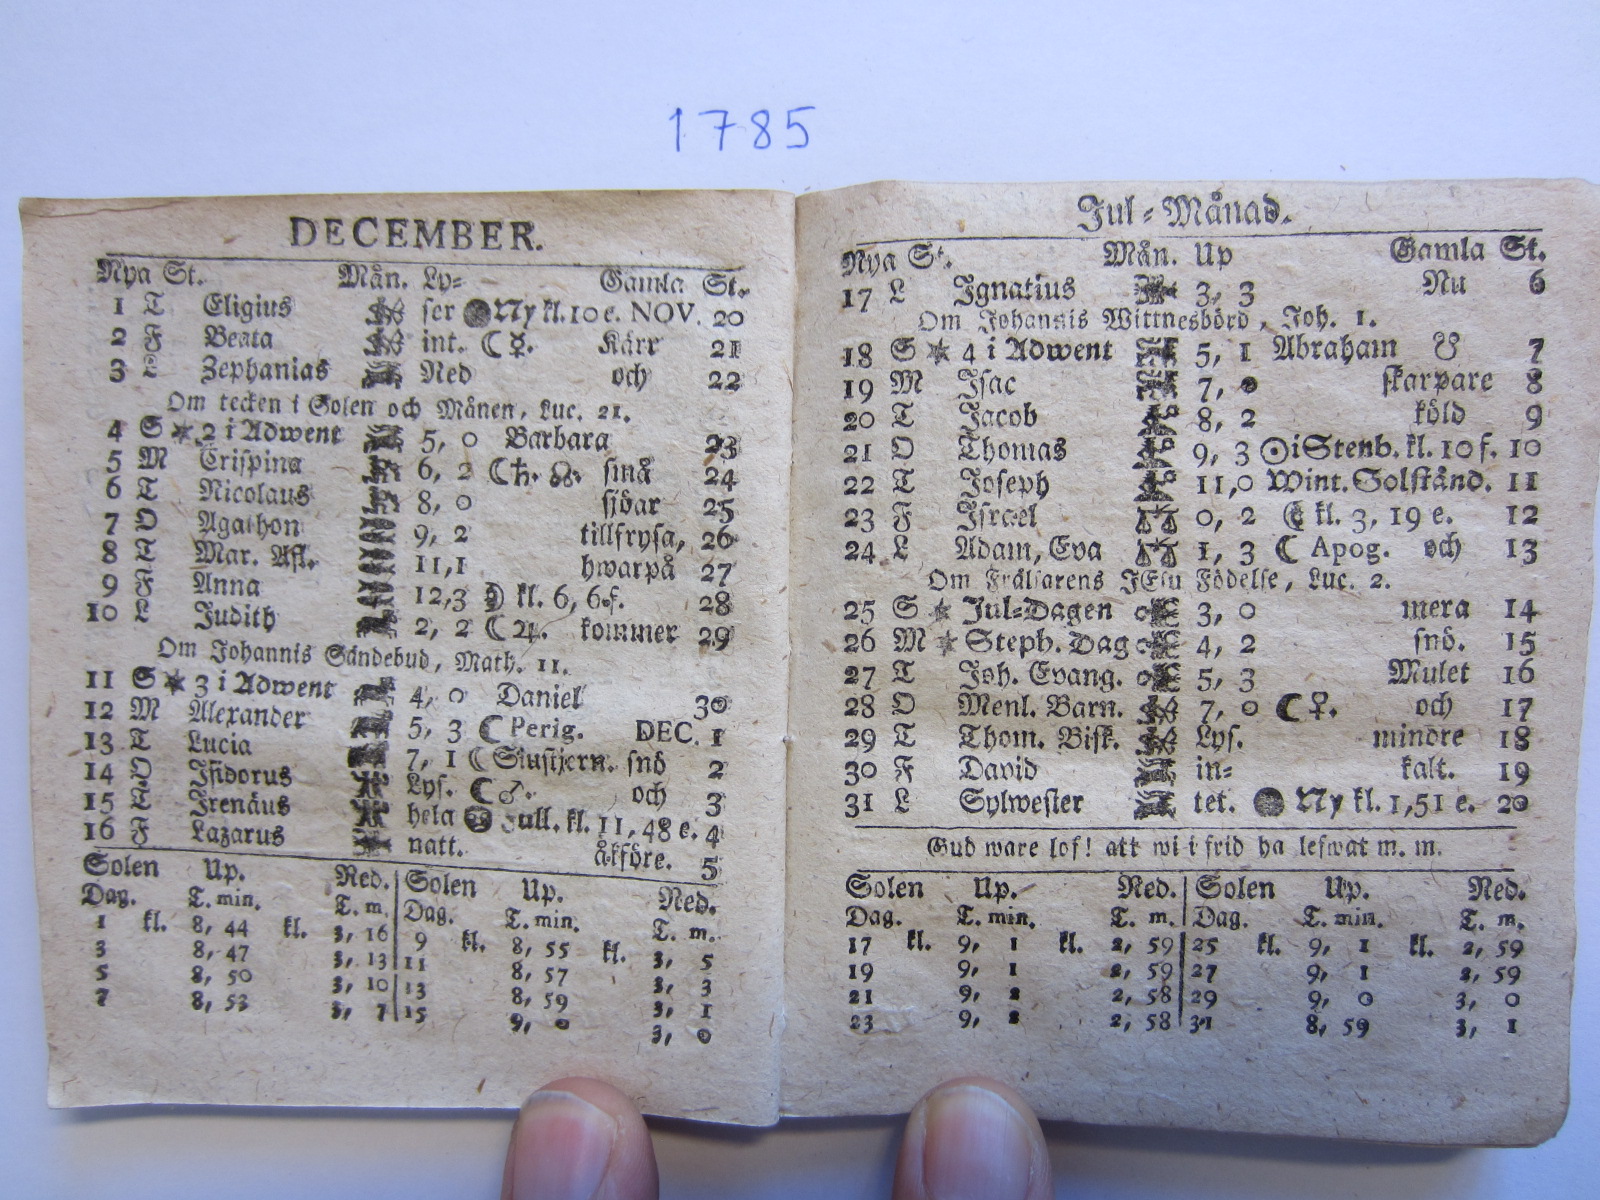 1785
DECEMBER.
Nya St. Mån. Ly= Gamla St.
1 T Eligius ser Ny kl. 10 e. NOV. 20
2 F Beata int. ☾ ☿. Kärr 21
3 L Zephanias Ned och 22
Om tecken i Solen och Månen, Luc. 21.
4 S * 2 i Adwent 5, 0 Barbara 23
5 M Crispina 6, 2 ☾ ♄. ☊. små 24
6 T Nicolaus 8, 0 siöar 25
7 O Agathon 9, 2 tillfrysa, 26
8 T Mar. Afl. 11,1 hwarpå 27
9 F Anna 12,3 ☽ kl. 6, 6 f. 28
10 L Judith 2, 2 ☾ ♃. kommer 29
Om Johannis Sändebud, Math. 11.
11 S * 3 i Adwent 4, 0 Daniel 30
12 M Alexander 5, 3 ☾ Perig. DEC. 1
13 T Lucia 7, 1 ☾ Siustjern. snö 2
14 O Isidorus Lys. ☾ ♂. och 3
15 T Irenäus hela Full. kl. 11, 48 e. 4
16 F Lazarus natt. åkföre. 5
Solen Up. Ned. Solen Up. Ned.
Dag. T. min. T. m. Dag. T. min. T. m.
1 kl. 8, 44 kl. 3, 16 9 kl. 8, 55 kl. 3, 5
3 8, 47 3, 13 11 8, 57 3, 3
5 8, 50 3, 10 13 8, 59 3, 1
7 8, 53 3, 7 15 9, 0 3, 0
Jul=Månad.
Nya St. Mån. Up Gamla St.
17 L Ignatius 3, 3 Nu 6
Om Johannis Wittnesbörd, Joh. 1.
18 S * 4 i Adwent 5, 1 Abraham ☋ 7
19 M Isac 7, 0 skarpare 8
20 T Jacob 8, 2 köld 9
21 O Thomas 9, 3 ☉ i Stenb. kl. 10 f. 10
22 T Joseph 11,0 Wint. Solstånd. 11
23 F Israel 0, 2 ☾ kl. 3, 19 e. 12
24 L Adam, Eva 1, 3 ☾ Apog. och 13
Om Frälsarens JEsu Födelse, Luc. 2.
25 S * Jul=Dagen 3, 0 mera 14
26 M * Steph. Dag 4, 2 snö. 15
27 T Joh. Evang. 5, 3 Mulet 16
28 O Menl. Barn. 7, 0 ☾ ♀. och 17
29 T Thom. Bisk. Lys. mindre 18
30 F David in= kalt. 19
31 L Sylwester tet. Ny kl. 1,51 e. 20
Gud ware lof! att wi i frid ha lefwat m. m.
Solen Up. Ned. Solen Up. Ned.
Dag. T. min. T. m. Dag. T. min. T. m.
17 kl. 9, 1 kl. 2, 59 25 kl. 9, 1 kl. 2, 59
19 9, 1 2, 59 27 9, 1 2, 59
21 9, 2 2, 58 29 9, 0 3, 0
23 9, 2 2, 58 31 8, 59 3, 1